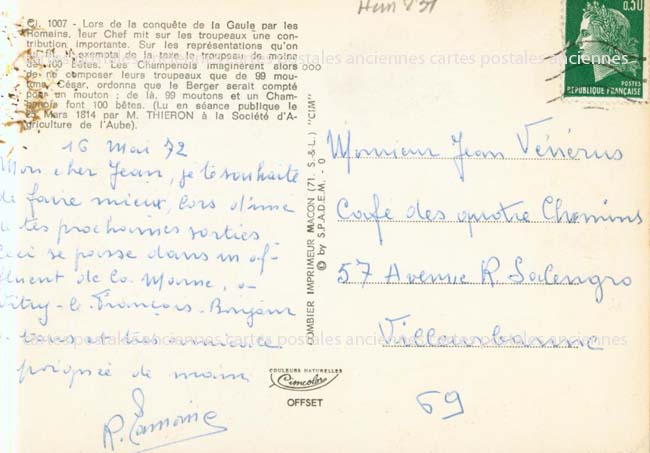 1007 - Lors de la conquête de la Gaule par les
Romains, leur Chef mit sur les troupeaux une con-
tribution importante. Sur les représentations qu'on
exempta de la taxe le troupeau de moins
100 bêtes. Les Champenois imaginèrent alors
de ne composer leurs troupeaux que de 99 mou-
César, ordonna que le Berger serait compté
pour un mouton ; de là, 99 moutons et un Cham-
font 100 bêtes. (Lu en séance publique le
Mars 1814 par M. THIERON à la Société d'A-
griculture de l'Aube).
16 Mai 72
Mon cher Jean, je te souhaite
de faire mieux, lors d'une
de tes prochaines sorties
Ceci se passe dans un af-
fluent de la Marne, à
Vitry-le-François. Bonjour
à tous et très amicale
poignée de main
COMBIER IMPRIMEUR MACON (71. S.-&L.) "CIM"
© by S.P.A.D.E.M. - O
COULEURS NATURELLES
Cimcolor
OFFSET
0,30
POSTES
REPUBLIQUE FRANÇAISE
Monsieur Jean Vénérus
Café des quatre Chemins
57 Avenue R Salengro
Villeurbanne
69
cartes postales anciennes cartes postales anciennes
cartes postales anciennes cartes postales anciennes